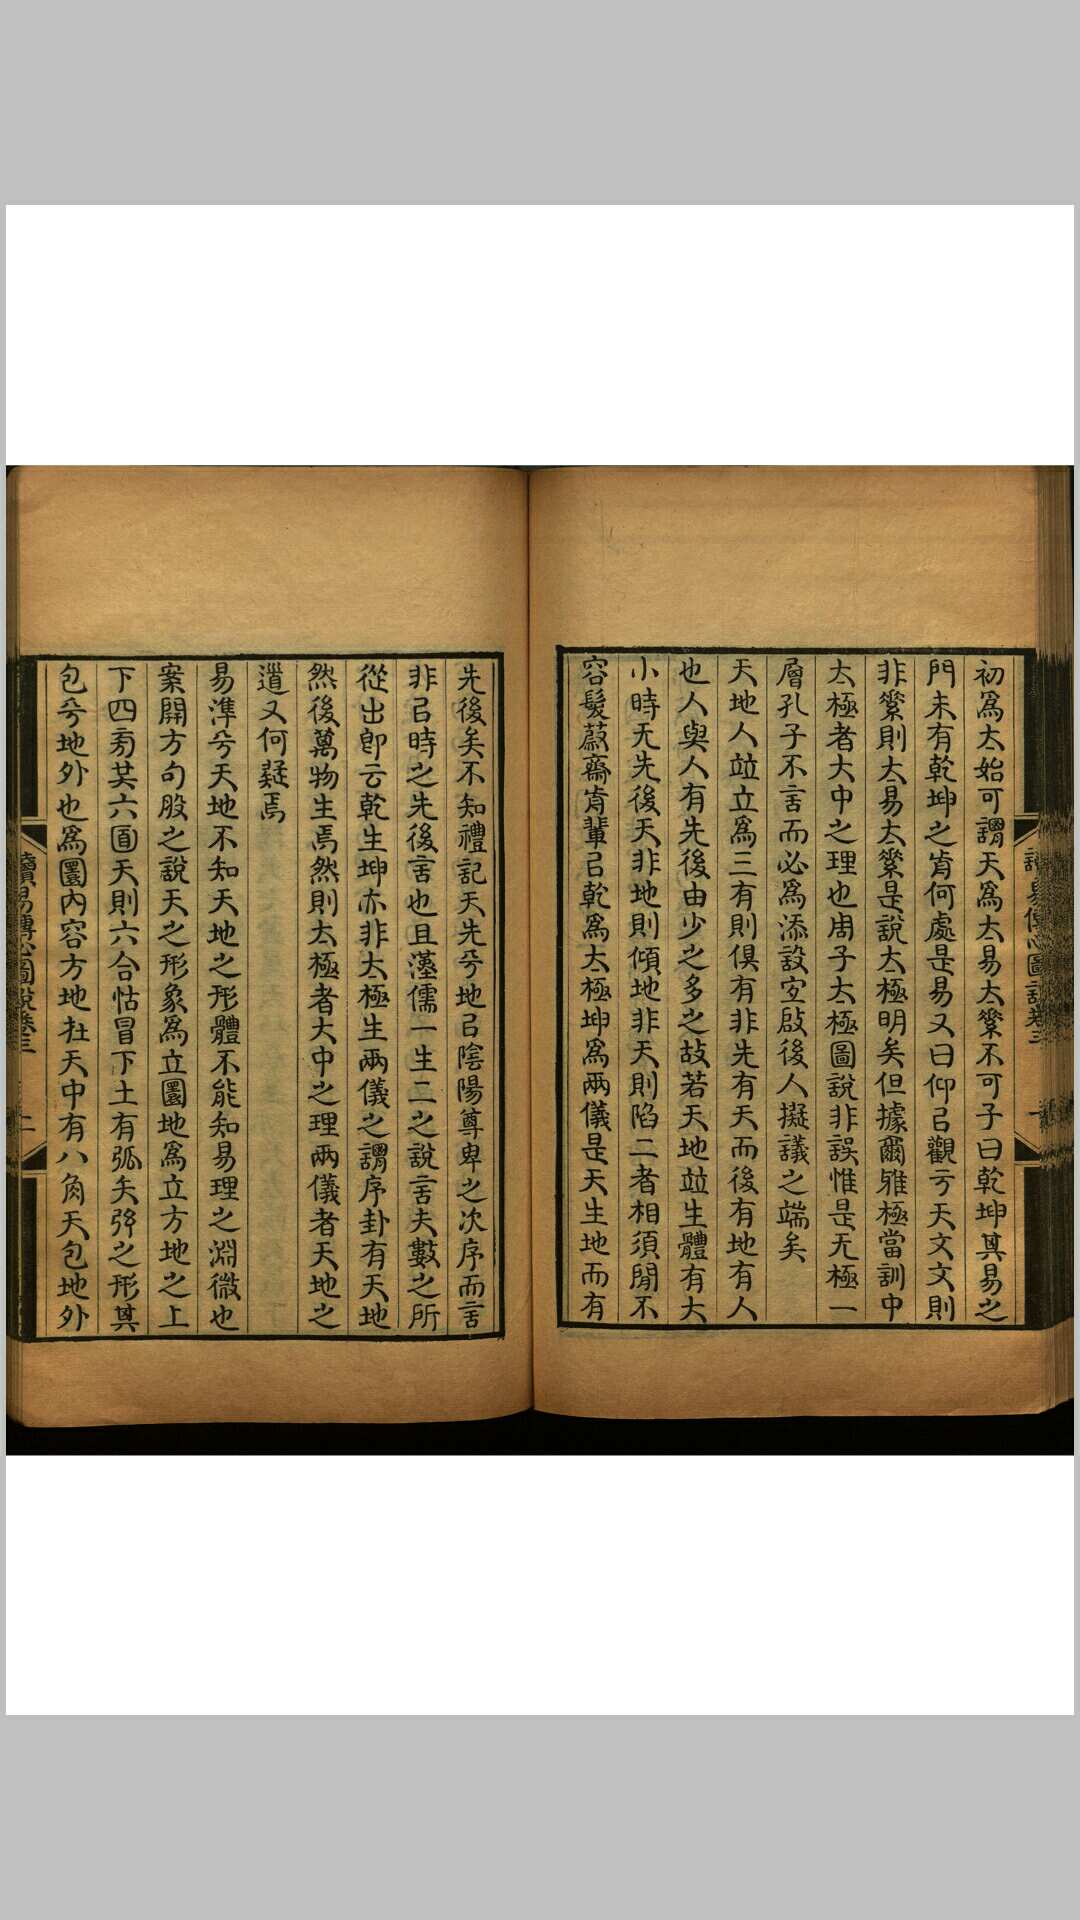 初爲太始可謂天爲太易太縏不可子曰乾坤其易之
門未有乾坤之歬何處是易又曰仰㠯觀亏天文文則
非縏則太易太縏是說太極明矣但據爾雅極當訓中
太極者大中之理也周子太極圖說非誤惟是无極一
層孔子不言而必爲添設宐啟後人擬議之端矣
天地人竝立爲三有則俱有非先有天而後有地有人
也人與人有先後由少之多之故若天地竝生體有大
小時无先後天非地則傾地非天則陷二者相須閒不
容髮蔡齋歬輩㠯乾爲太極坤爲兩儀是天生地而有
先後矣不知禮記天先兮地㠯陰陽尊卑之次序而言
非㠯時之先後言也且漢儒一生二之說言夫數之所
從出卽云乾生坤亦非太極生兩儀之謂序卦有天地
然後萬物生焉然則太極者大中之理兩儀者天地之
道又何疑焉
易準兮天地不知天地之形體不能知易理之淵微也
案開方句股之說天之形象爲立圜地爲立方地之上
下四旁共六面天則六合怙冒下土有弧矢弳之形其
包兮地外也爲圜內容方地在天中有八角天包地外
讀易傳心圖說卷三
一
讀易傳心圖說卷三
二